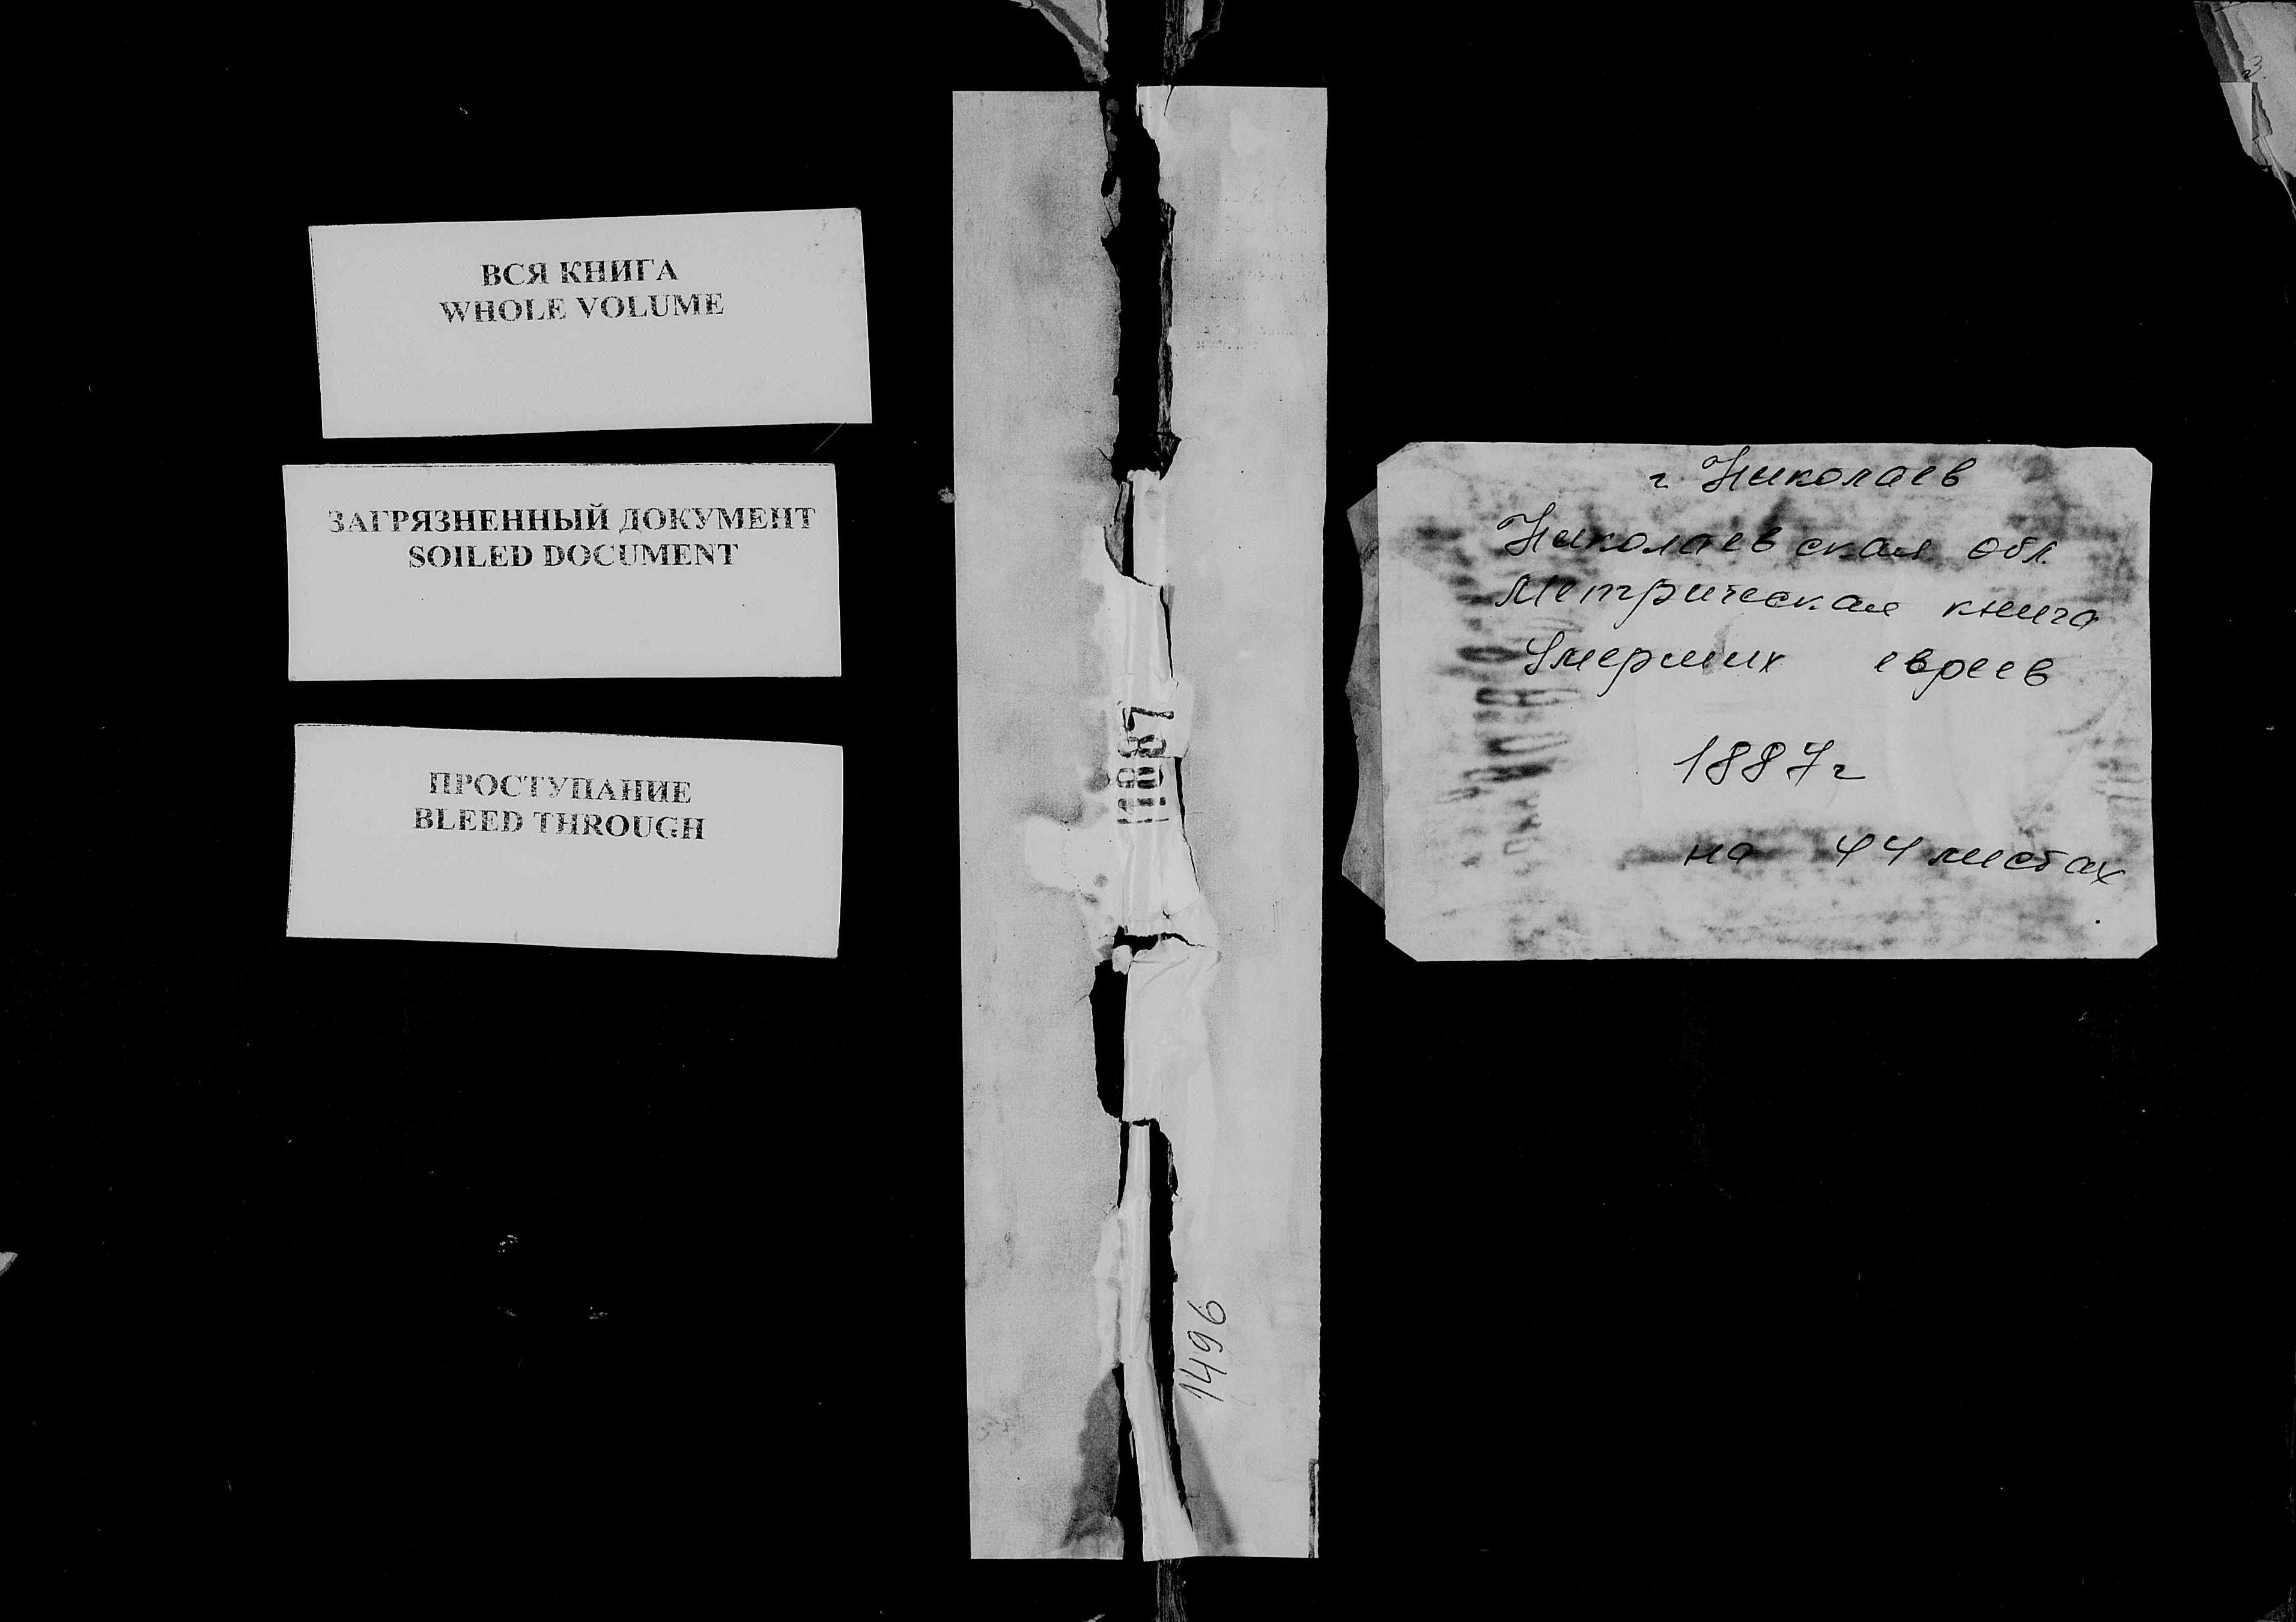 ВСЯ КНИГА
WHOLE VOLUME
ЗАГРЯЗНЕННЫЙ ДОКУМЕНТ
SOILED DOCUMENT
ПРОСТУПАНИЕ
BLEED THROUGH
1887
1496
г Николаев
Николаевская обл.
Метрическая книга
Умерших евреев
1887 г
на 44 листах
3.